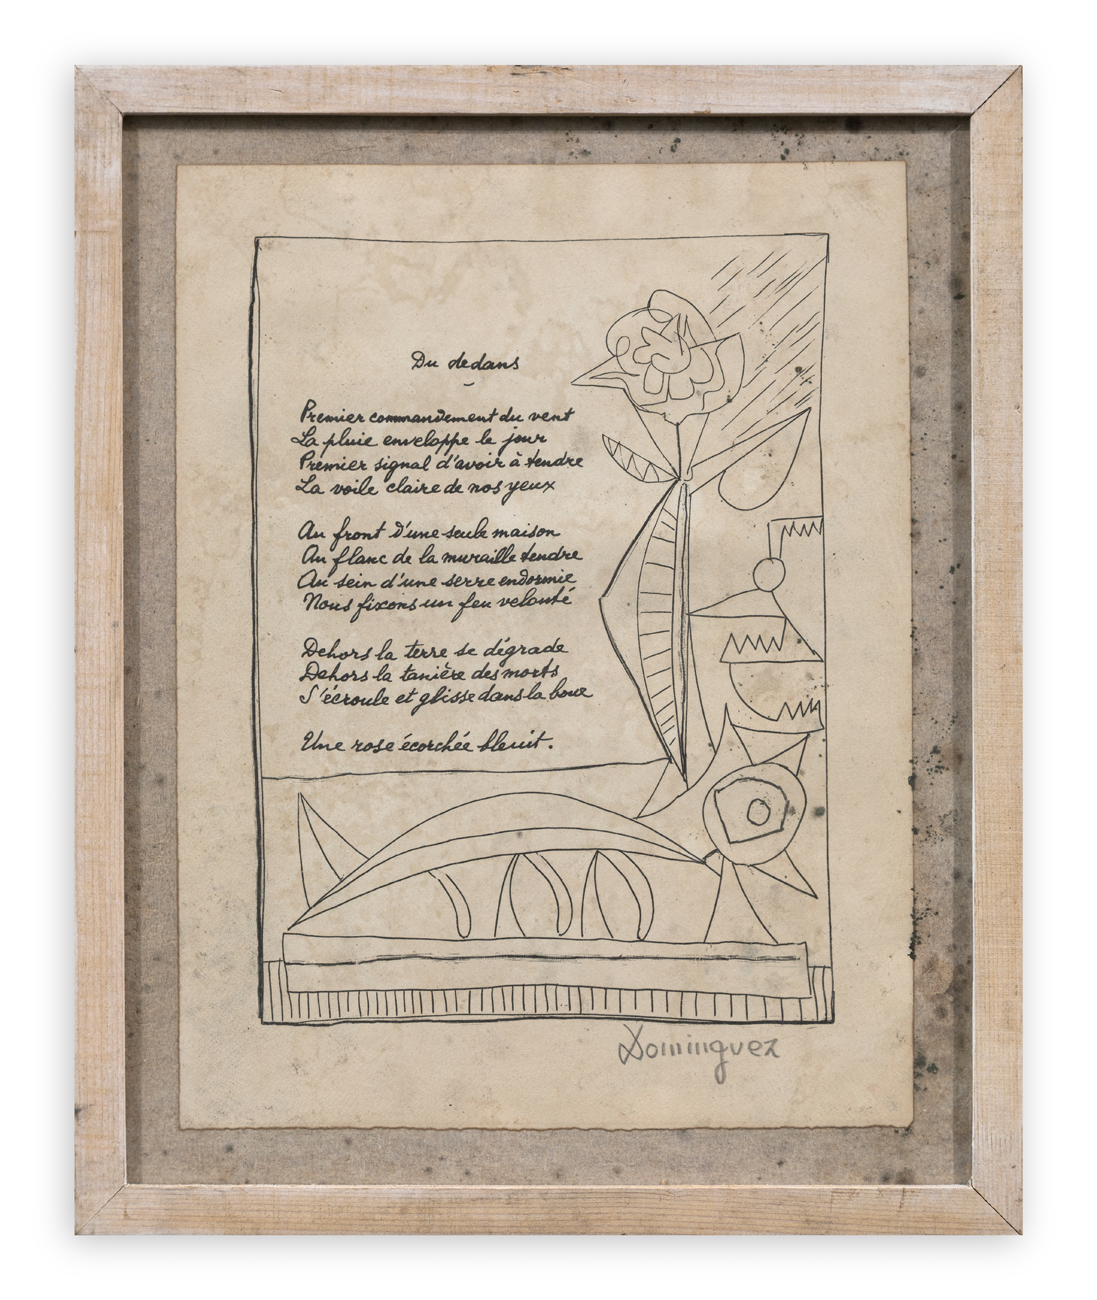 Du dedans
Premier commandement du vent
La pluie enveloppe le jour
Premier signal d'avoir à tendre
La voile claire de nos yeux
Au front d'une seule maison
Au flanc de la muraille tendre
Au sein d'une serre endormie
Nous fixons un feu velouté
Dehors la terre se dégrade
Dehors la tanière des morts
S'écroule et glisse dans la boue
Une rose écorchée bleuit.
Dominguez